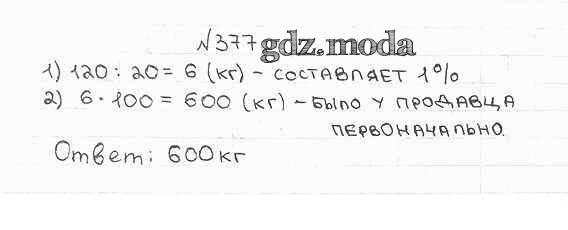 №377 gdz.moda
1) 120 : 20 = 6 (кг) - СОСТАВЛЯЕТ 1%
2) 6 · 100 = 600 (кг) - БЫЛО У ПРОДАВЦА
ПЕРВОНАЧАЛЬНО.
Ответ: 600 кг